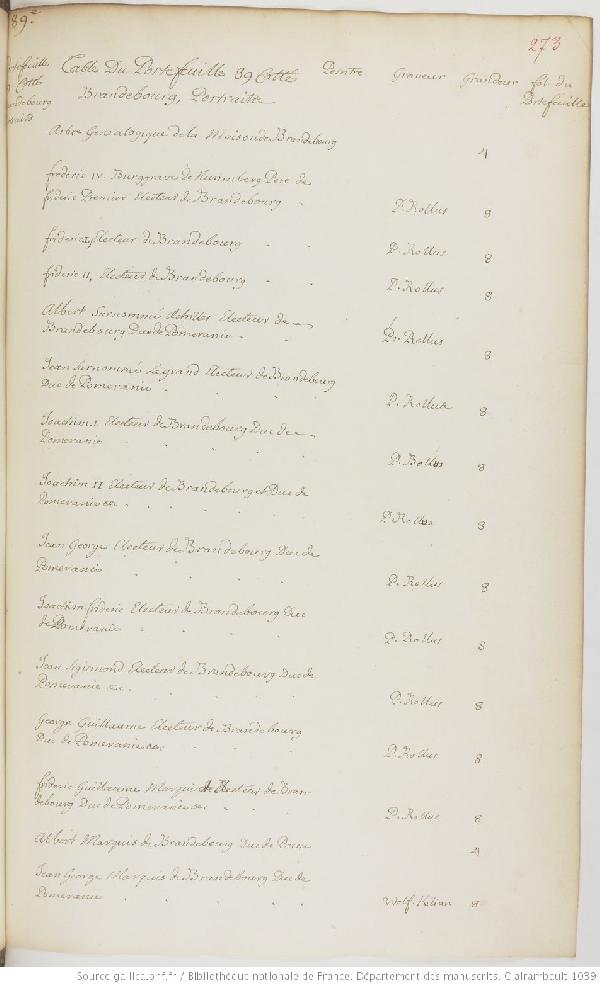 89.e
273
Portefeuille
Cotté
Brandebourg
Portraits
Table Du Portefeuille 89 Cotté Peintre Graveur Grandeur fol. du
Brandebourg, Portraits Portefeuille
Arbre Genealogique de la Maison de Brandebourg 4
frederic IV. Burggrave de Nuremberg Pere de
frideric Premier Electeur de Brandebourg P. Rollus 8
frideric I, Electeur de Brandebourg P. Rollus 8
frideric II, Electeur de Brandebourg P. Rollus 8
Albert Surnommé Achilles Electeur de
Brandebourg Duc de Pomeranie P. Rollus 8
Jean Surnommé Le grand Electeur de Brandebourg
Duc de Pomeranie P. Rollus 8
Joachim I Electeur de Brandebourg Duc de
Pomeranie P. Rollus 8
Joachim II Electeur de Brandebourg et Duc de
Pomeranie &c P. Rollus 8
Jean George Electeur de Brandebourg Duc de
Pomeranie P. Rollus 8
Joachim frideric Electeur de Brandebourg Duc
de Pomeranie P. Rollus 8
Jean Sigismond Electeur de Brandebourg Duc de
Pomeranie &c. P. Rollus 8
George Guillaume Electeur de Brandebourg
Duc de Pomeranie &c. P. Rollus 8
frideric Guillaume Marquis Electeur de Bran-
debourg Duc de Pomeranie &c P. Rollus 8
Albert Marquis de Brandebourg Duc de Prusse 4
Jean George Marquis de Brandebourg Duc de
Pomeranie Wolf. Kilian 8
Source gallica.bnf.fr / Bibliothèque nationale de France. Département des manuscrits. Clairambault 1039